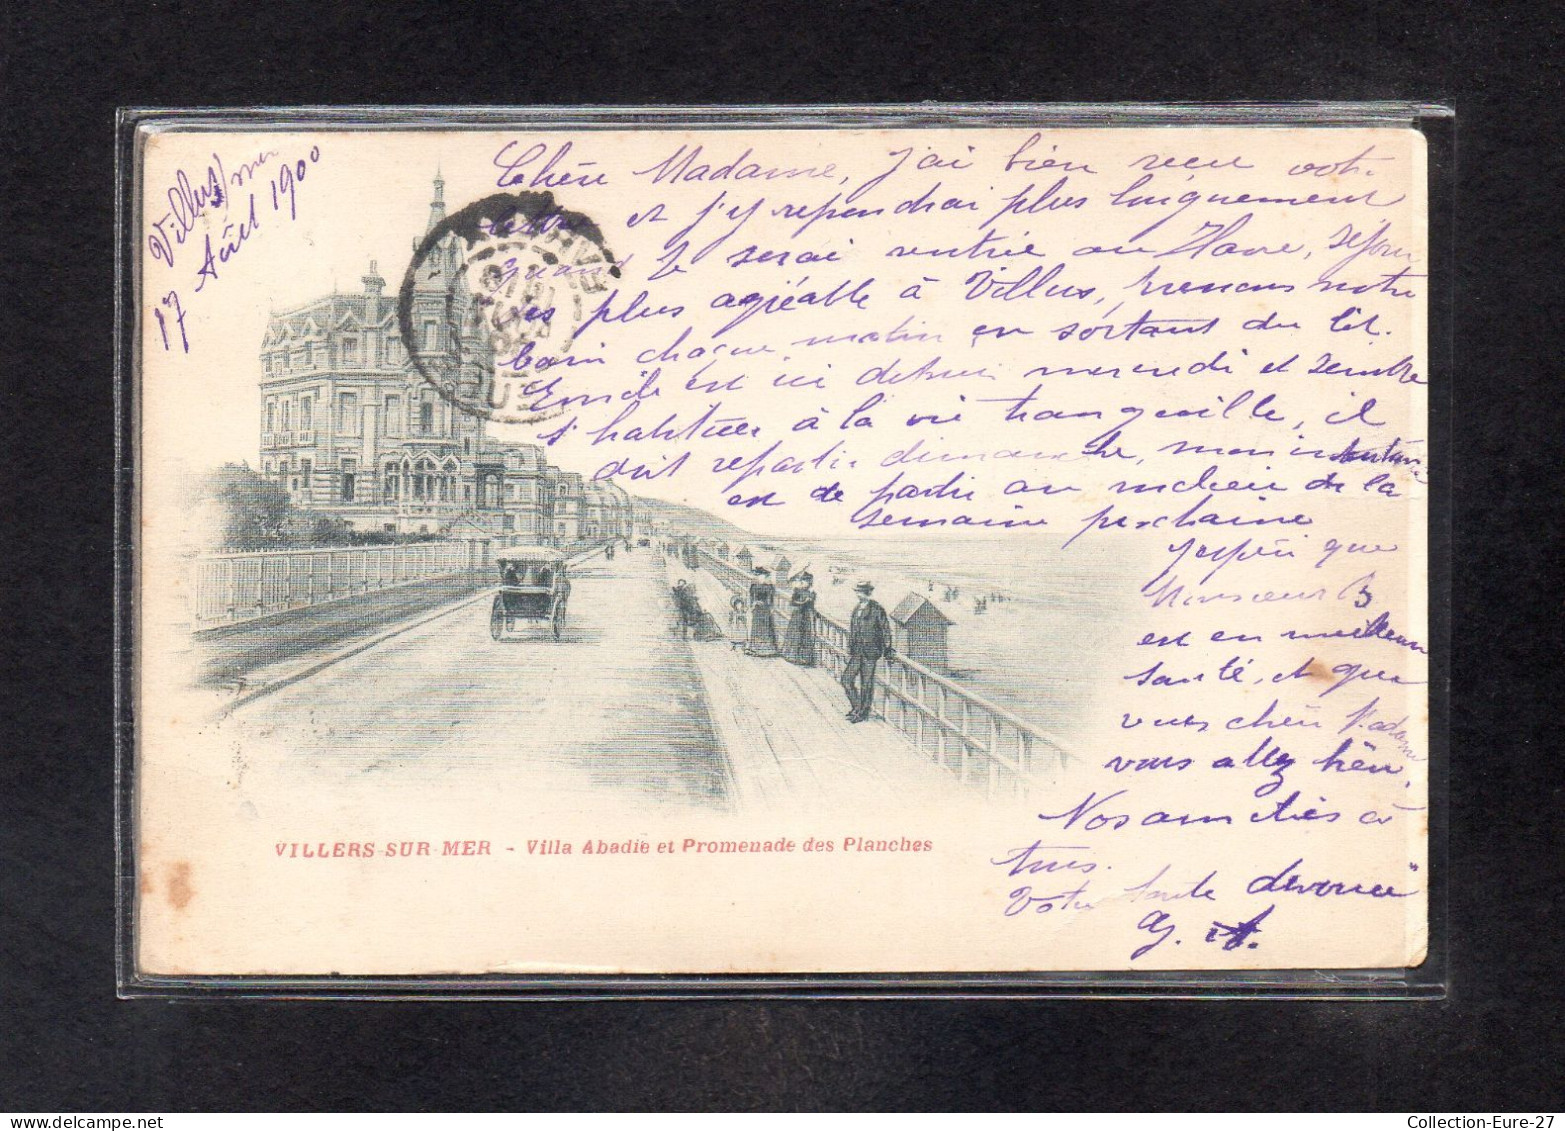 Villers s/ mer
17 Août 1900
Chère Madame, j'ai bien reçu votre
lettre et j'y rependrai plus longuement
quand je serai rentrée au Havre, séjour
plus agréable à Villers, prenons notre
bain chaque matin en sortant du lit.
Emile est ici depuis mercredi et semble
s'habituer à la vie tranquille, il
doit repartir dimanche, mon
est de partir au milieu de la
semaine prochaine
J'espère que
Monsieur B
est en meilleure
santé, et que
vous chère Madame
vous allez bien.
Nos amitiés à
tous.
Votre toute dévouée
G. A.
VILLERS-SUR-MER - Villa Abadie et Promenade des Planches
Collection-Eure-27